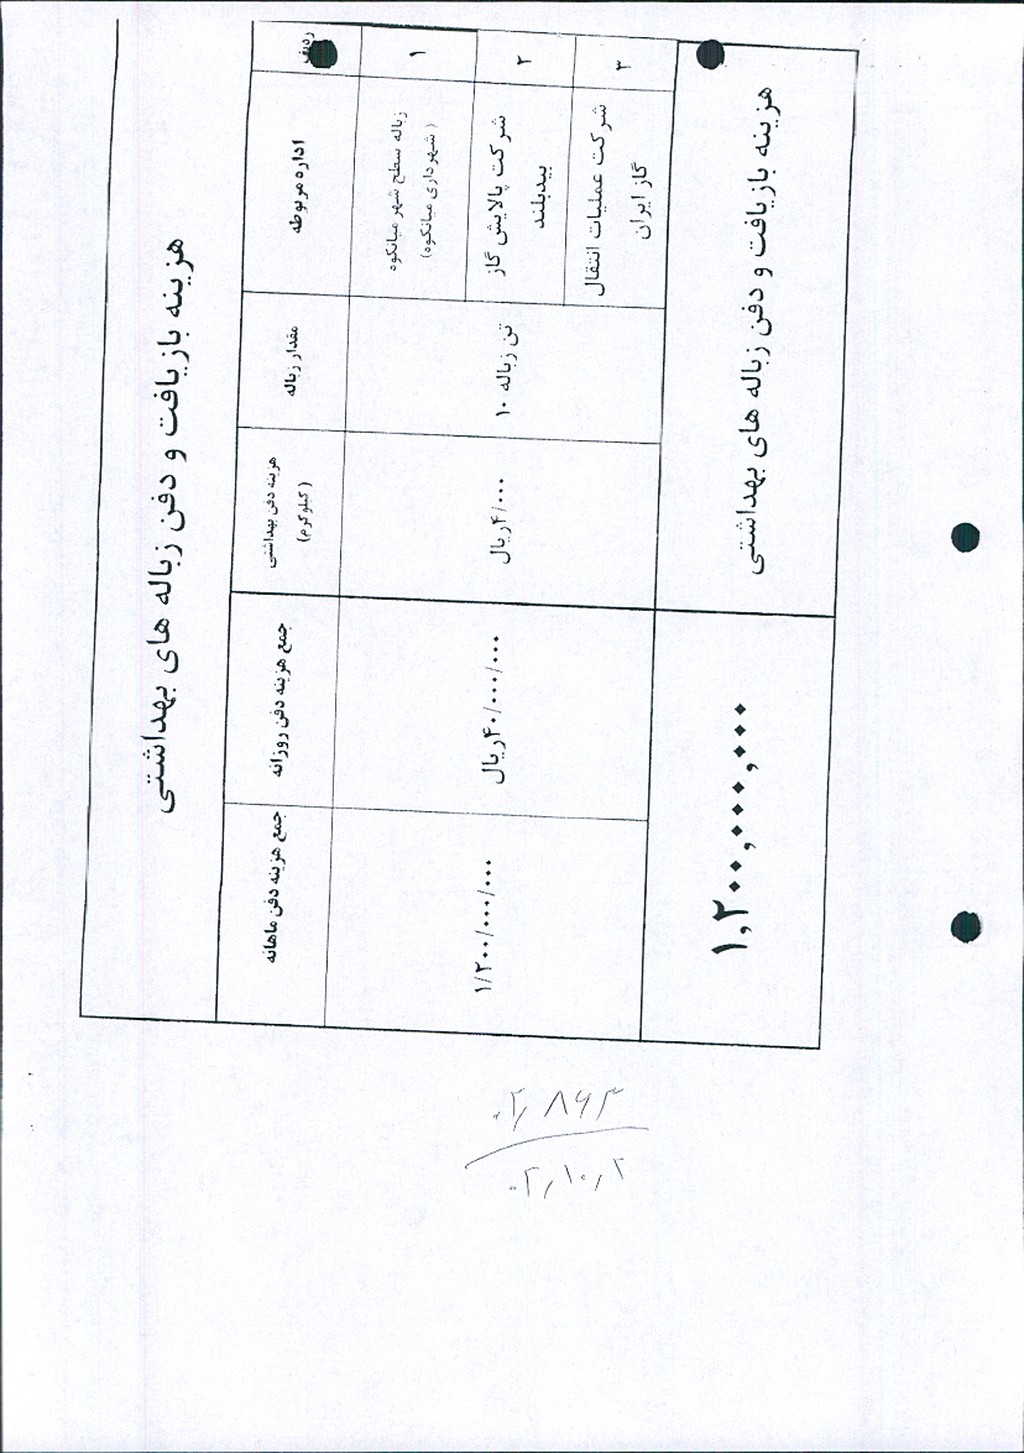 هزینه بازیافت و دفن زباله های بهداشتی
ردیف
اداره مربوطه
مقدار زباله
هزینه دفن بهداشتی
(کیلوگرم)
جمع هزینه دفن روزانه
جمع هزینه دفن ماهانه
۱
زباله سطح شهر میانکوه
(شهرداری میانکوه)
۲
شرکت پالایش گاز
بیدبلند
۳
شرکت عملیات انتقال
گاز ایران
۱۰ تن زباله
۴/۰۰۰ریال
۴۰/۰۰۰/۰۰۰ریال
۱/۲۰۰/۰۰۰/۰۰۰
هزینه بازیافت و دفن زباله های بهداشتی
۱,۲۰۰,۰۰۰,۰۰۰
۰۲,۸۶۳
۰۲,۱۰,۲